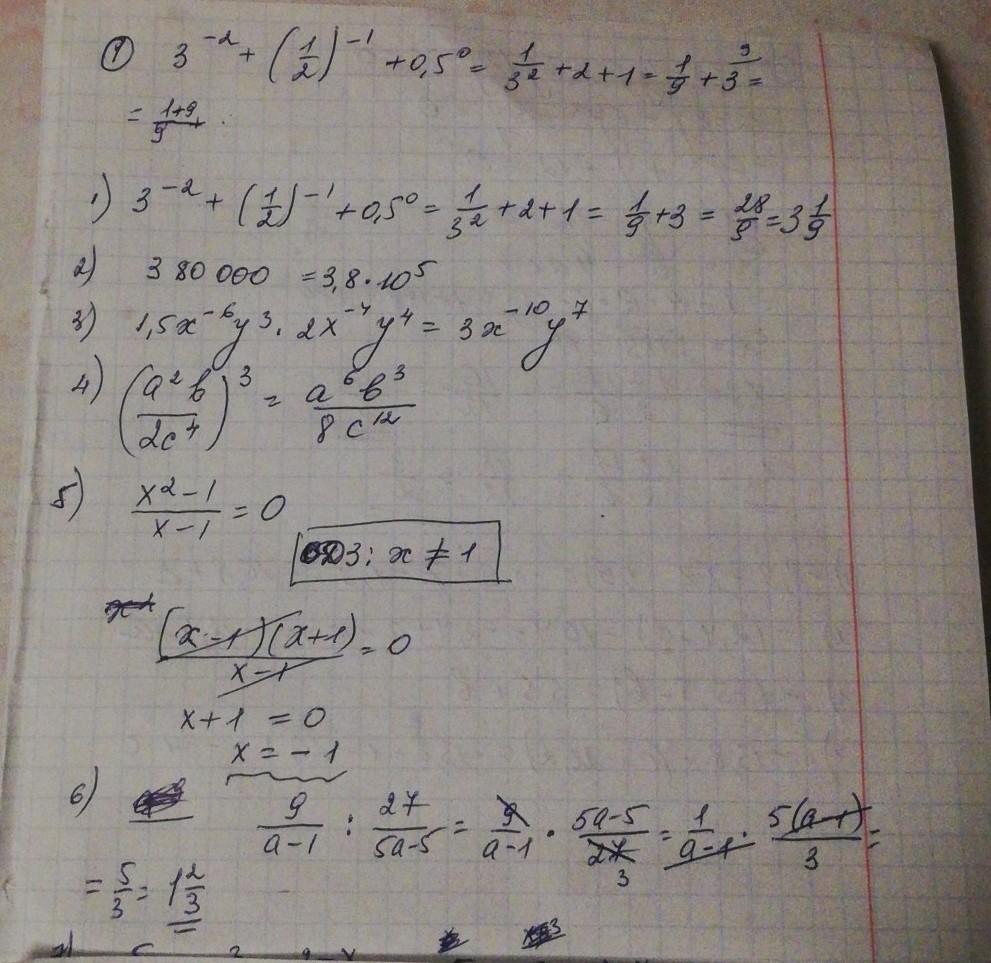 ① 3⁻² + (1/2)⁻¹ + 0,5⁰ = 1/3² + 2 + 1 = 1/9 + 3 ⁹ =
= 1+9/9
1) 3⁻² + (1/2)⁻¹ + 0,5⁰ = 1/3² + 2 + 1 = 1/9 + 3 = 28/9 = 3 1/9
2) 380 000 = 3,8 · 10⁵
3) 1,5x⁻⁶y³ · 2x⁻⁴y⁴ = 3x⁻¹⁰y⁷
4) (a²b/2c⁴)³ = a⁶b³/8c¹²
5) x²-1/x-1 = 0
ОДЗ: x ≠ 1
(x-1)(x+1)/x-1 = 0
x+1 = 0
x = -1
6) 9/a-1 : 27/5a-5 = 9/a-1 · 5a-5/27 3 = 1/a-1 · 5(a-1)/3 =
= 5/3 = 1 2/3